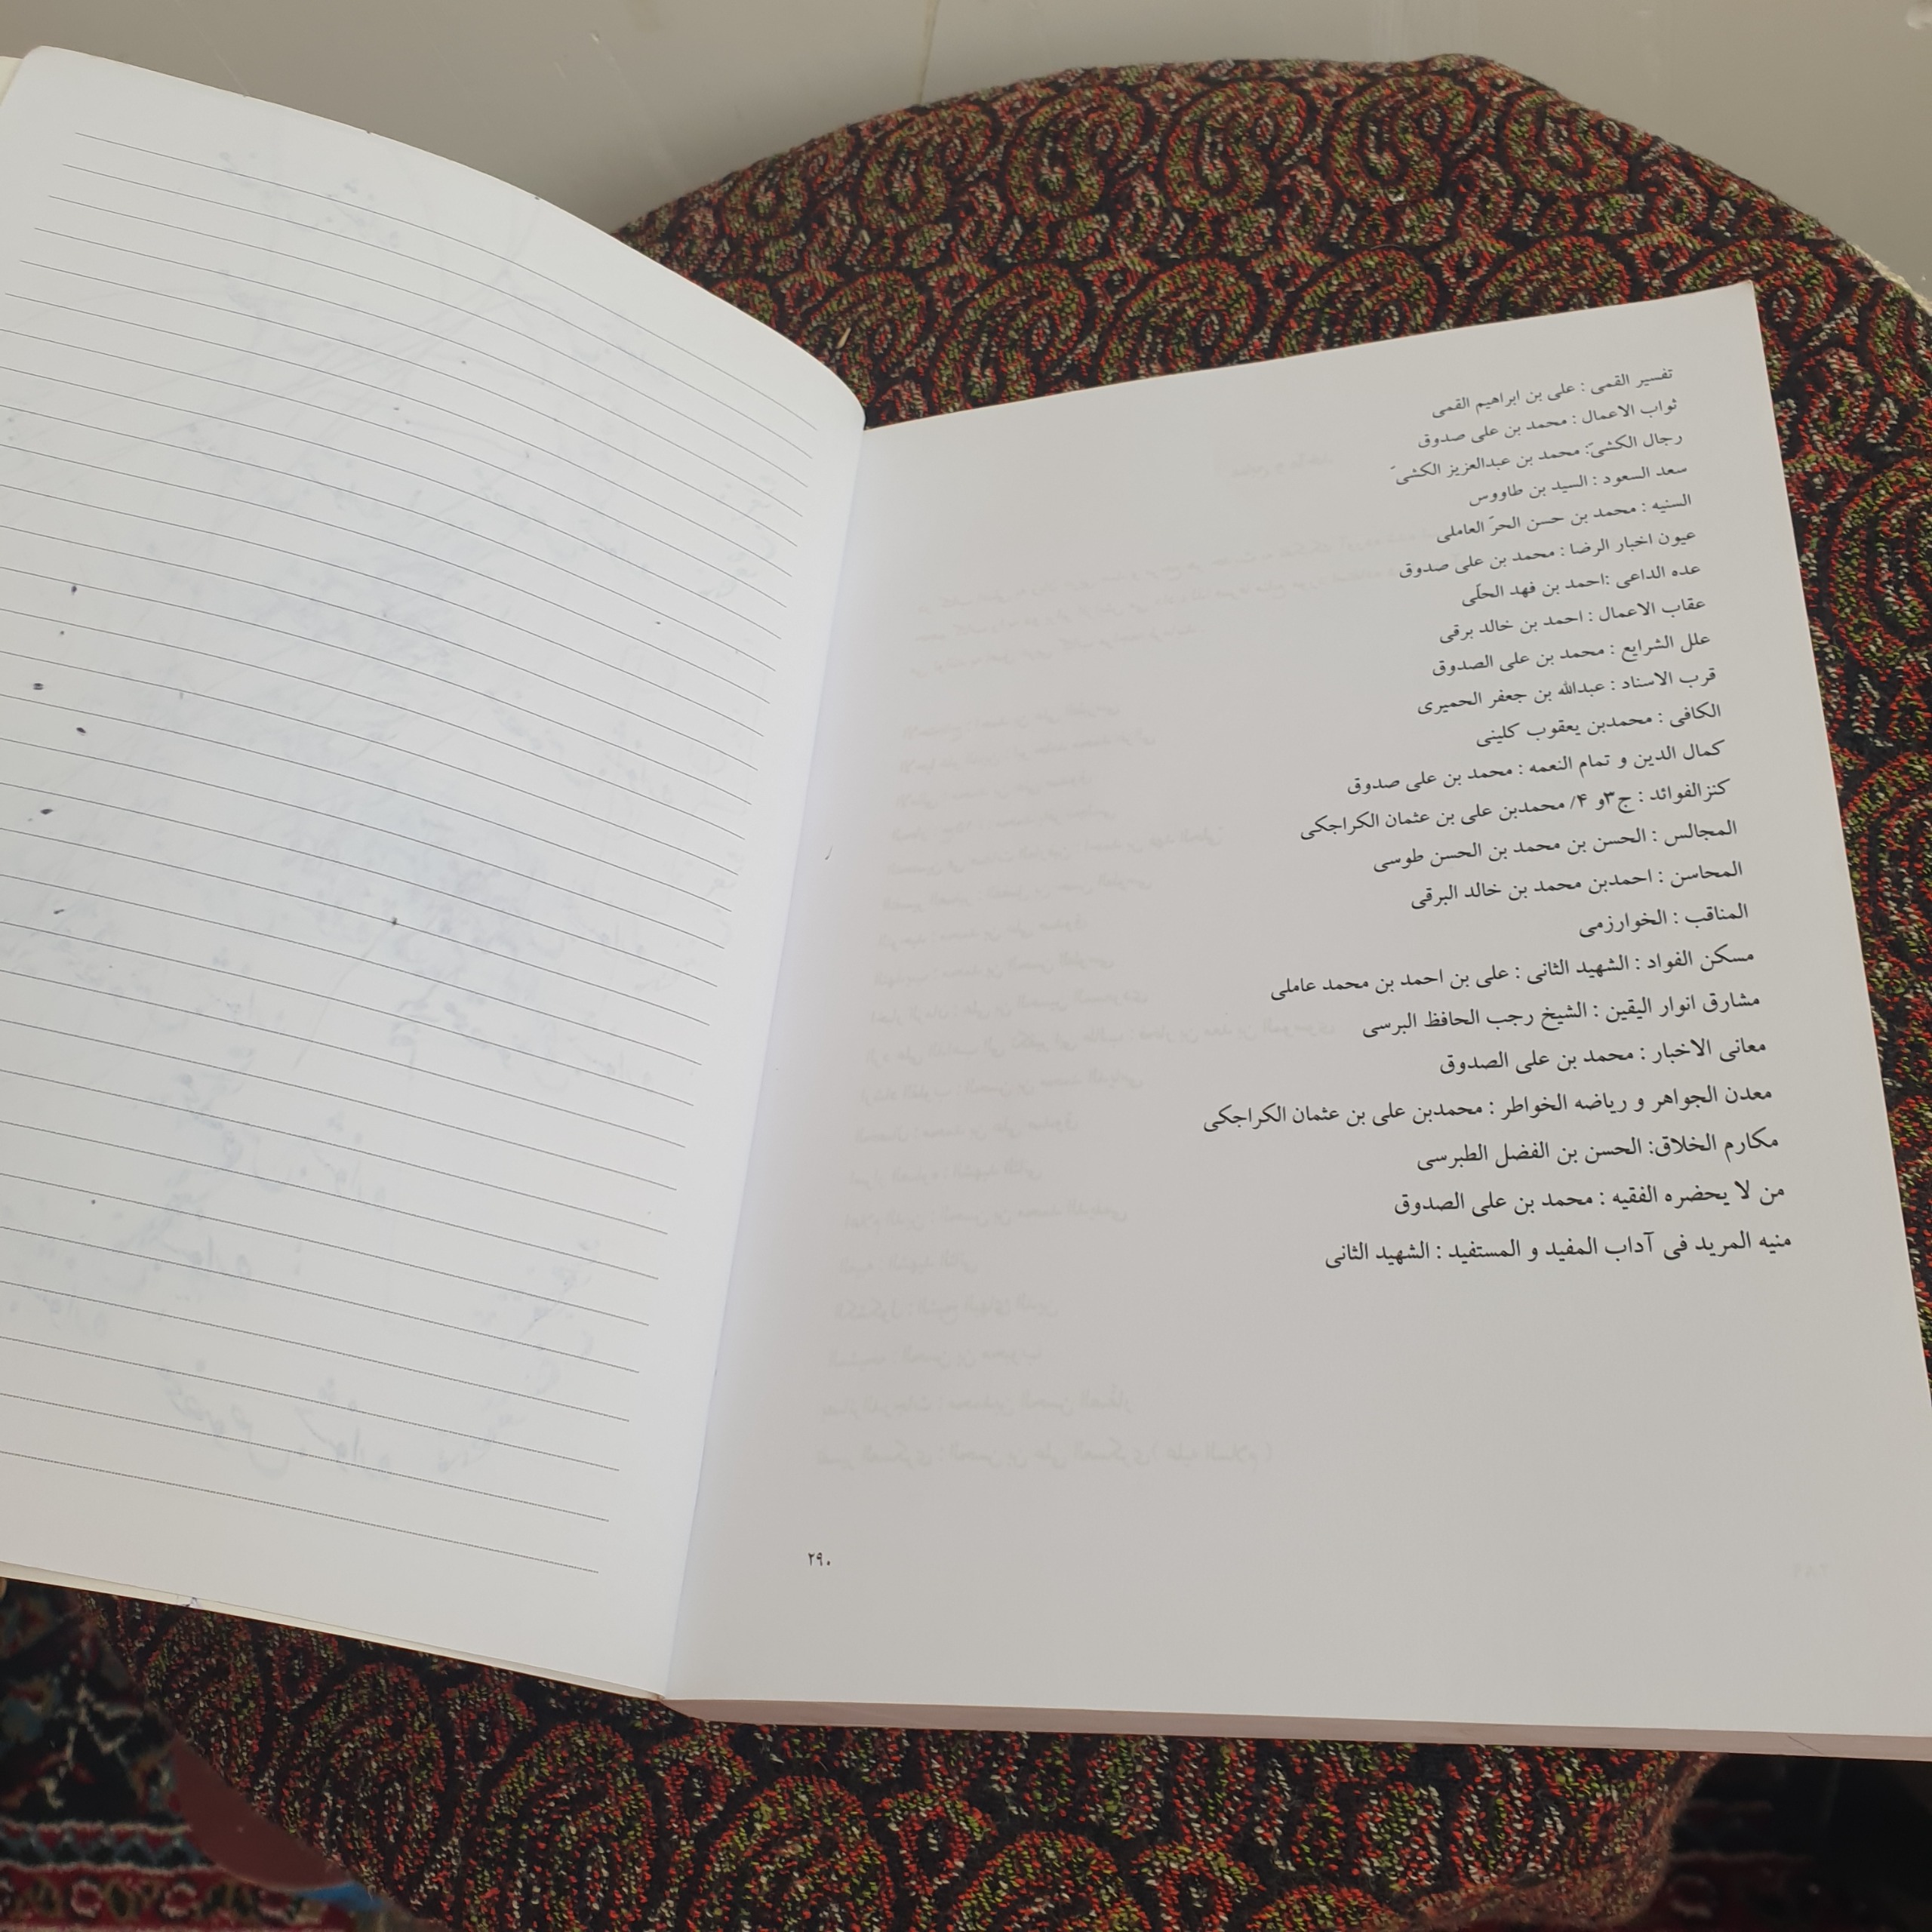 تفسیر القمی : علی بن ابراهیم القمی
ثواب الاعمال : محمد بن علی صدوق
رجال الکشیّ: محمد بن عبدالعزیز الکشیّ
سعد السعود : السید بن طاووس
السنیه : محمد بن حسن الحرّ العاملی
عیون اخبار الرضا : محمد بن علی صدوق
عده الداعی :احمد بن فهد الحلّی
عقاب الاعمال : احمد بن خالد برقی
علل الشرایع : محمد بن علی الصدوق
قرب الاسناد : عبدالله بن جعفر الحمیری
الکافی : محمدبن یعقوب کلینی
کمال الدین و تمام النعمه : محمد بن علی صدوق
کنزالفوائد : ج۳و ۴/ محمدبن علی بن عثمان الکراجکی
المجالس : الحسن بن محمد بن الحسن طوسی
المحاسن : احمدبن محمد بن خالد البرقی
المناقب : الخوارزمی
مسکن الفواد : الشهید الثانی : علی بن احمد بن محمد عاملی
مشارق انوار الیقین : الشیخ رجب الحافظ البرسی
معانی الاخبار : محمد بن علی الصدوق
معدن الجواهر و ریاضه الخواطر : محمدبن علی بن عثمان الکراجکی
مکارم الخلاق: الحسن بن الفضل الطبرسی
من لا یحضره الفقیه : محمد بن علی الصدوق
منیه المرید فی آداب المفید و المستفید : الشهید الثانی
۲۹۰